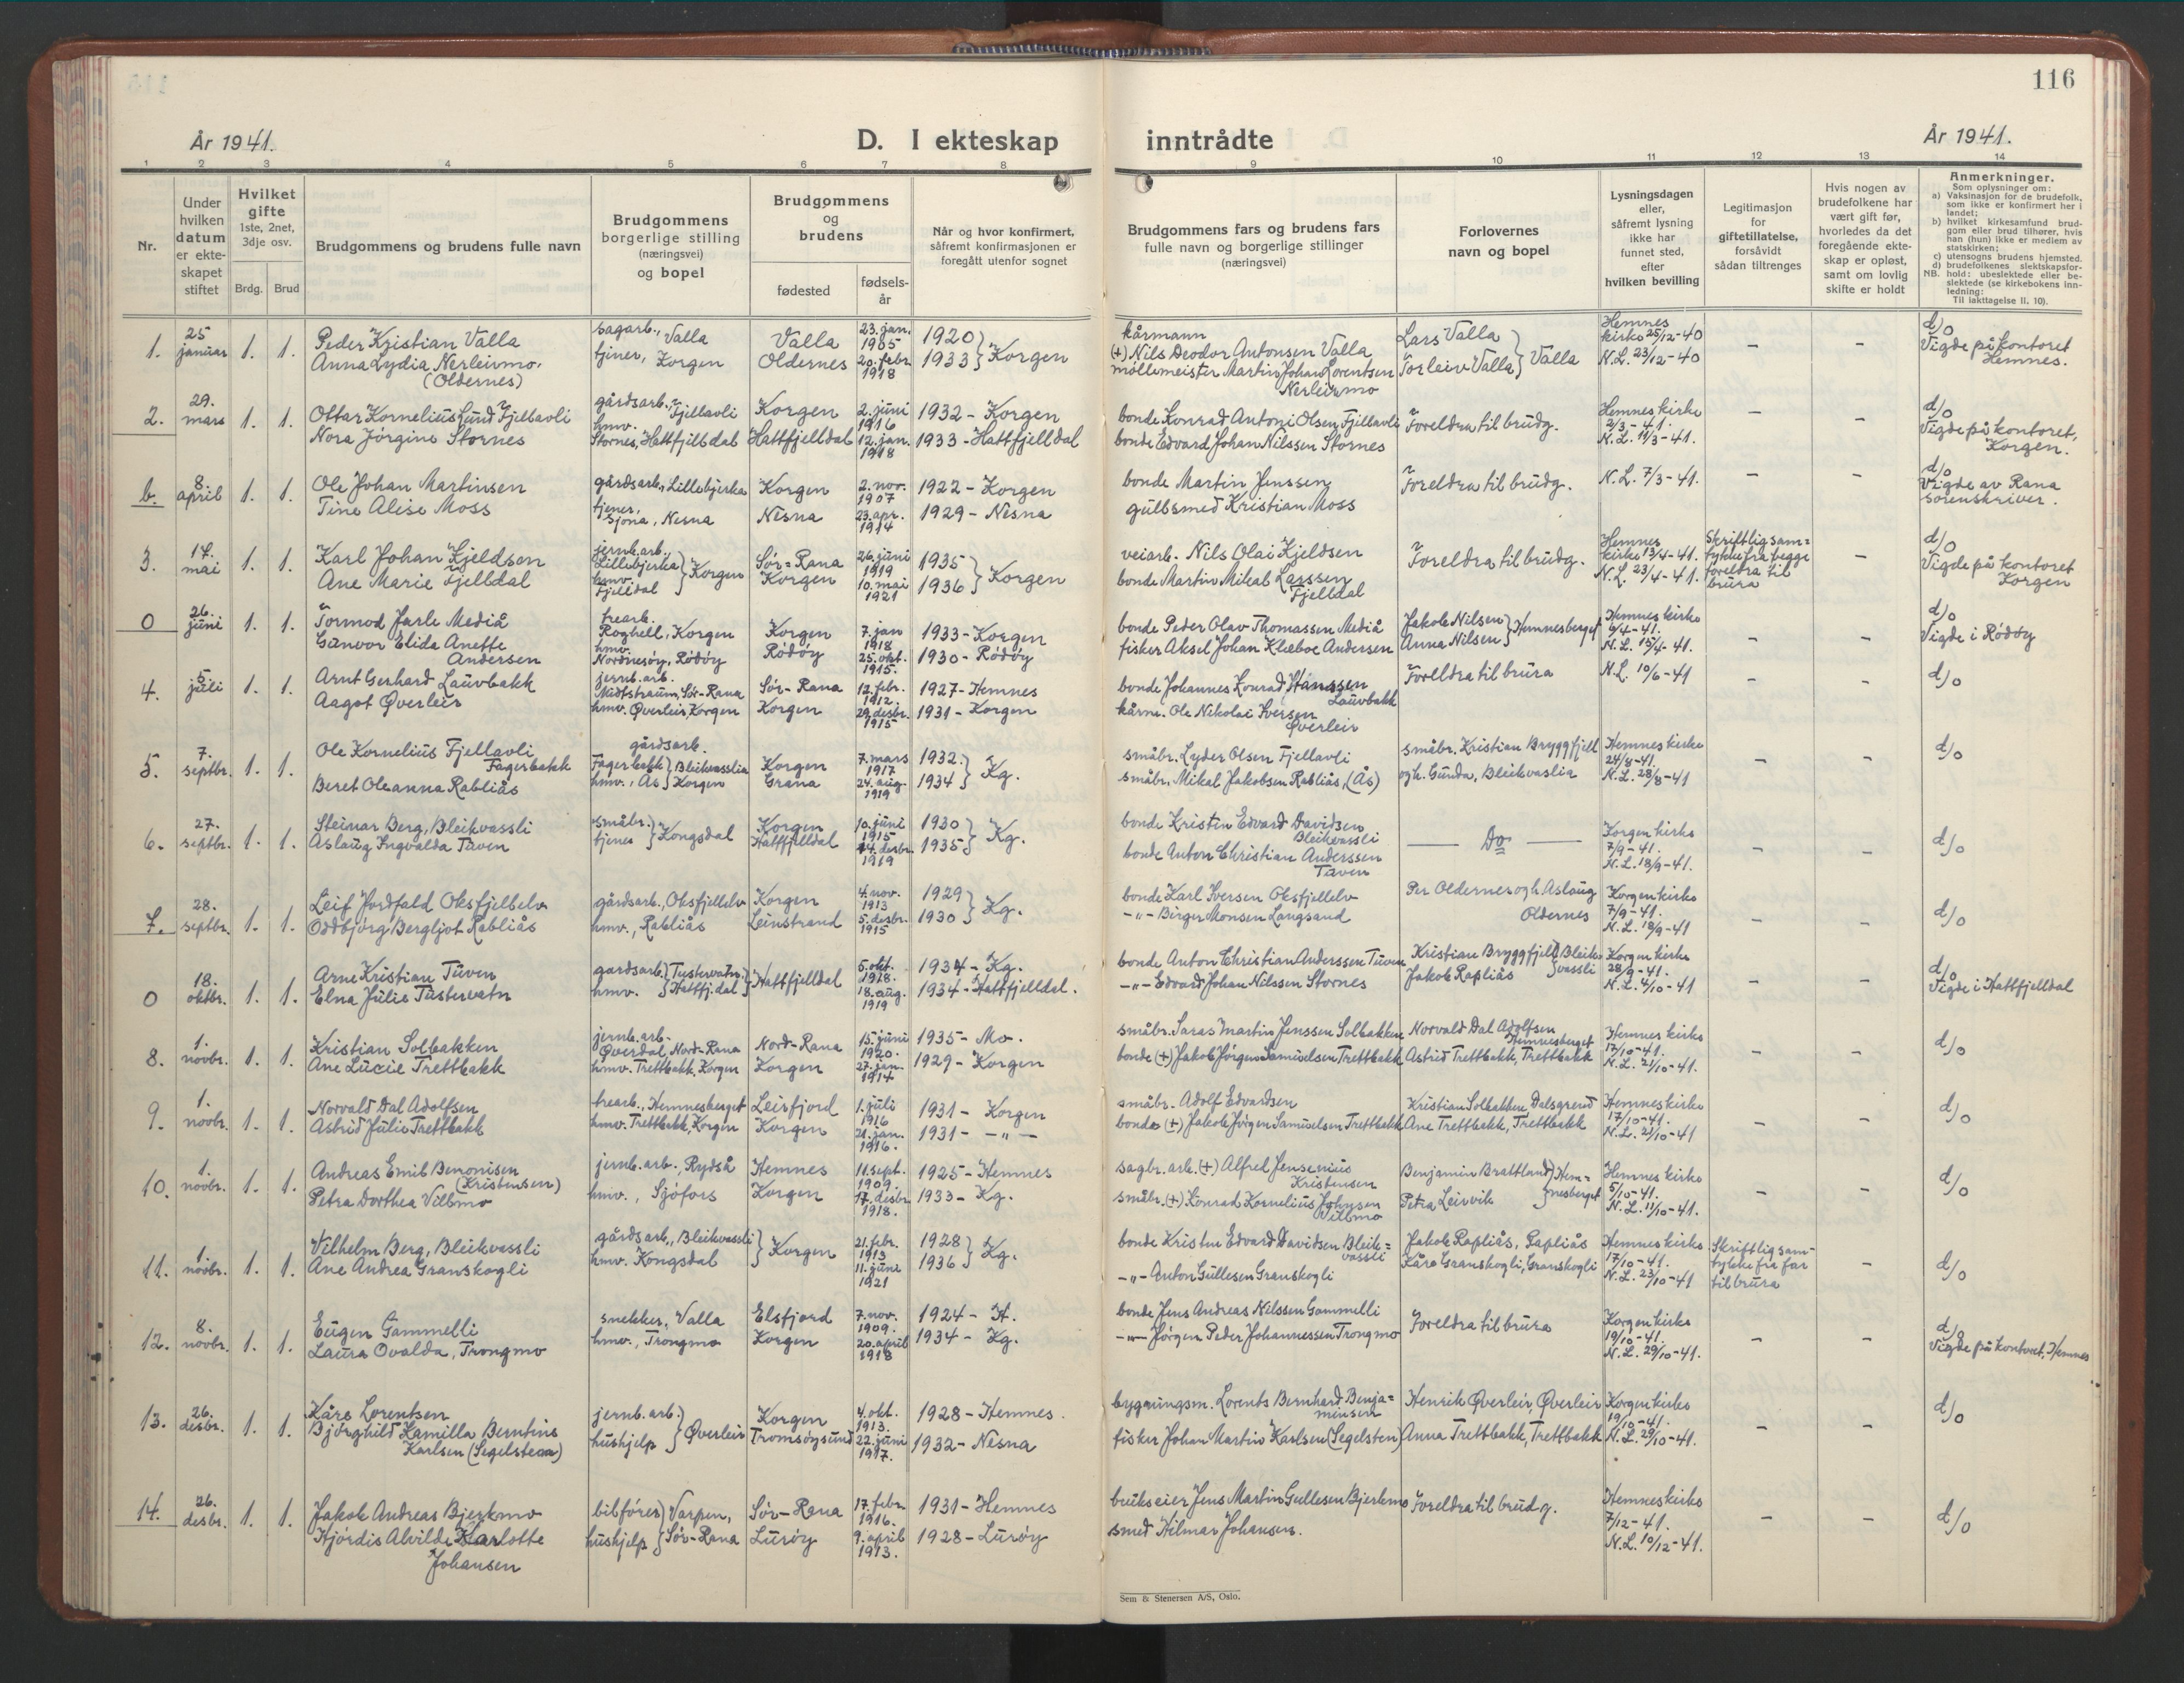 116
År 1941.
D. I ekteskap inntrådte
År 1941.
1 2 3 4 5 6 7 8 9 10 11 12 13 14
Nr.
Under hvilken datum er ekteskapet stiftet
Hvilket gifte 1ste, 2net, 3dje osv.
Brdg. Brud
Brudgommens og brudens fulle navn
Brudgommens borgerlige stilling (næringsvei) og bopel
Brudgommens og brudens
fødested
fødsels-år
Når og hvor konfirmert, såfremt konfirmasjonen er foregått utenfor sognet
Brudgommens fars og brudens fars fulle navn og borgerlige stillinger (næringsvei)
Forlovernes navn og bopel
Lysningsdagen eller, såfremt lysning ikke har funnet sted, efter hvilken bevilling
Legitimasjon for giftetillatelse, forsåvidt sådan tiltrenges
Hvis nogen av brudefolkene har vært gift før, hvorledes da det foregående ekteskap er opløst, samt om lovlig skifte er holdt
Anmerkninger.
Som oplysninger om:
a) Vaksinasjon for de brudefolk, som ikke er konfirmert her i landet;
b) hvilket kirkesamfund brudgom eller brud tilhører, hvis han (hun) ikke er medlem av statskirken;
c) utensogns brudens hjemsted.
d) brudefolkenes slektskapsforhold: ubeslektede eller beslektede (se kirkebokens innledning:
NB. Til iakttagelse II. 10).
1. 25 januar 1. 1. Peder Kristian Valla sagarb., Valla Valla 23. jan. 1905 1920 Korgen
Anna Lydia Nerleirmo. (Oldernes) tjener, Korgen Oldernes 20. febr. 1918 1933
kårmann (+) Nils Deodor Antonsen Valla Lars Valla Hemnes kirke 25/12-40 - - d/o
møllemeister Martin Johan Lorentsen Nerleirmo Torleiv Valla } Valla N.L. 23/12-40 Vigde på kontoret Hemnes.
2. 29. mars 1. 1. Ottar Kornelius Lund Fjellavli gårdsarb., Fjellavli Korgen 2. juni 1916 1932 - Korgen
Nora Jørgine Stornes hmv. Stornes, Hattfjelldal Hattfjelldal 12. jan. 1918 1933 - Hattfjelldal
bonde Konrad Antoni Olsen Fjellavli Foreldra til brudg. Hemnes kirke 2/3-41. - - d/o
bonde Edvard Johan Nilssen Stornes N.L. 11/3-41. Vigde på kontoret, Korgen.
b. 8. april 1. 1. Ole Johan Martinsen gårdsarb., Lillebjerka Korgen 2. nov. 1907 1922 - Korgen
Tine Alise Moss tjener, Sjona, Nesna Nesna 23. apr. 1914 1929 - Nesna
bonde Martin Jenssen Foreldra til brudg. N.L. 7/3-41. - - d/o
gullsmed Kristian Moss Vigde av Rana sorenskriver.
3. 17. mai 1. 1. Karl Johan Kjeldsen jernb.arb., Lillebjerka Sør-Rana 26. juni 1919 1935
Ane Marie Fjelldal hmv. Fjelldal } Korgen Korgen 10. mai 1921 1936 } Korgen
veiarb. Nils Olai Kjeldsen Foreldra til brudg. Hemnes kirke 13/4-41. Skriftlig samtykke fra begge foreldra til brura - d/o
bonde Martin Mikal Larssen Fjelldal N.L. 23/4-41. Vigde på kontoret Korgen
0 26. juni 1. 1. Tormod Jarle Mediå trearb. Roghell, Korgen Korgen 7. jan 1918 1933 - Korgen
Gunvor Elida Anette Andersen hmv. Nordnesøy, Rødøy Rødøy 25. okt. 1915. 1930 - Rødøy
bonde Peder Olav Thomassen Mediå Jakob Nilsen Hemnes kirke 6/4-41. - - d/o
fisker Aksel Johan Klæboe Andersen Anna Nilsen } Hemnesberget N.L. 15/4-41. Vigde i Rødøy
4. 5. juli 1. 1. Arnt Gerhard Lauvbakk jernb.arb. Midtstraum, Sør-Rana Sør-Rana 12. febr. 1912. 1927 - Hemnes
Aagot Øverleir hmv. Øverleir, Korgen Korgen 29. desbr. 1915 1931 - Korgen
bonde Johannes Konrad Hanssen Lauvbakk Foreldra til brura N.L. 10/6-41 - - d/o
kårm. Ole Nikolai Iversen Øverleir
5. 7. septbr. 1. 1. Ole Kornelius Fjellavli Fagerbakk gårdsarb. Fagerbakk Korgen 7. mars 1917 1932.
Beret Oleanna Rabliås hmv., Ås } Bleikvasslia Korgen Grana 24. aug. 1919 1934 } Kg.
småbr. Lyder Olsen Fjellavli småbr. Kristian Bryggfjell Hemnes kirke 24/8-41. - - d/o
småbr. Mikal Jakobsen Rabliås, (Ås) og h. Gunda, Bleikvaslia N.L. 28/8-41
6. 27. septbr. 1. 1. Steinar Berg, Bleikvassli småbr. Korgen 10. juni 1915 1930
Aslaug Ingvalda Tuven tjener } Kongsdal Hattfjelldal 14. desbr. 1919 1935 } Kg.
bonde Kristen Edvard Davidsen Bleikvassli — Do — Korgen kirke 7/9-41. - - d/o
bonde Anton Christian Anderssen Tuven N.L. 18/9-41.
7. 28. septbr. 1. 1. Leif Jordfald Oksfjellelv gårdsarb., Oksfjellelv Korgen 4. nov. 1913 1929
Oddbjørg Bergljot Rabliås hmv., Rabliås Leinstrand 5. desbr. 1915 1930 } Kg.
bonde Karl Iversen Oksfjellelv Per Oldernes og h. Aslaug Oldernes Korgen kirke 7/9-41. - - d/o
-"- Birger Monsen Langsand N.L. 18/9-41
0 18. oktbr. 1. 1. Arne Kristian Tuven gardsarb. } Tustervatn. Hattfjelldal 5. okt. 1918. 1934 - Kg.
Elna Julie Tustervatn hmv. } Hattfj.dal 18. aug. 1919 1934 - Hattfjelldal.
bonde Anton Christian Anderssen Tuven Kristian Bryggfjell Korgen kirke 28/9-41. - - d/o
-"- Edvard Johan Nilssen Stornes Jakob Rapliås } Bleikvassli N.L. 4/10-41 Vigde i Hattfjelldal
8. 1. novbr. 1. 1. Kristian Solbakken jernb.arb. Øverdal, Nord-Rana Nord-Rana 15. juni 1920. 1935 - Mo.
Ane Lucie Trettbakk hmv. Trettbakk, Korgen Korgen 27. jan. 1914 1929 - Korgen
småbr. Martin Jenssen Solbakken Norvald Dal Adolfsen Hemnesberget Hemnes kirke 17/10-41. - - d/o
bonde (+) Jakob Jørgen Samuelsen Trettbakk Astrid Trettbakk, Trettbakk N.L. 21/10-41.
9. 1. novbr. 1. 1. Norvald Dal Adolfsen trearb., Hemnesberget Leirfjord 1. juli 1916 1931 - Korgen
Astrid Julie Trettbakk hmv. Trettbakk, Korgen Korgen 21. jan. 1916. 1931 - -"-
småbr. Adolf Edvardsen Kristian Solbakken Dalsgrend Hemnes kirke 17/10-41. - - d/o
bonde (+) Jakob Jörgen Samuelsen Trettbakk Ane Trettbakk, Trettbakk N.L. 21/10-41
10. 1. novbr. 1. 1. Andreas Emil Benonisen (Kristensen) jernb.arb., Rydså Hemnes 11. sept. 1909. 1925 - Hemnes
Petra Dorthea Villmo hmv., Sjøfors Korgen 17. desbr. 1918. 1933 - Kg.
sagbr.arb. (+) Alfred Jensenius Kristensen Benjamin Brattland Hemnes kirke 5/10-41. - - d/o
småbr. (+) Konrad Kornelius Johnsen Villmo Petra Leirvik } Hemnesberget N.L. 11/10-41.
11. 1. novbr. 1. 1. Vilhelm Berg, Bleikvassli gårdsarb., Bleikvassli 21. febr. 1913 1928
Ane Andrea Granskogli hmv. Kongsdal } Korgen 11. juni 1921 1936 } Kg.
bonde Kristen Edvard Davidsen Bleikvassli Jakob Rapliås, Rapliås Hemnes kirke 17/10-41. Skriftlig samtykke fra far til brura - d/o
-"- Anton Gullesen Granskogli Kåre Granskogli, Granskogli N.L. 23/10-41
12. 8. novbr. 1. 1. Eugen Gammelli snekker, Valla Elsfjord 7. nov. 1909. 1924 - H.
Laura Ovalda, Trongmo hmv., Trongmo Korgen 20. april 1918 1934 - Kg.
bonde Jens Andreas Nilssen Gammelli Foreldra til brura Korgen kirke 19/10-41. - - d/o
-"- Jørgen Peder Johannessen Trongmo N.L. 29/10-41. Vigde på kontoret, Hemnes
13. 26. desbr. 1. 1. Kåre Lorentsen jernb.arb. Korgen 4. okt. 1913. 1928 - Hemnes.
Bjørghild Kamilla Berntine Karlsen (Segelsteen) hushjelp } Øverleir Tromsøysund 22. juni 1917. 1932 - Nesna
bygningsm. Lorents Bernhard Benjaminsen Henrik Øverleir, Øverleir Korgen kirke 19/10-41. - - d/o
fisker Johan Martin Karlsen (Segelsten) Anna Trettbakk, Trettbakk N.L. 29/10-41.
14. 26. desbr. 1. 1. Jakob Andreas Bjerkmo bilfører Sør-Rana 17. febr. 1916. 1931 - Hemnes
Hjørdis Alvilde Karlotte Johansen hushjelp } Varpen, Sør-Rana Lurøy 9. april 1913. 1928 - Lurøy
brukseier Jens Martin Gullesen Bjerkmo Foreldra til brudg. Hemnes kirke 7/12-41. - - d/o
smed Hilmar Johansen. N.L. 10/12-41.
Sem & Stenersen A/S, Oslo.